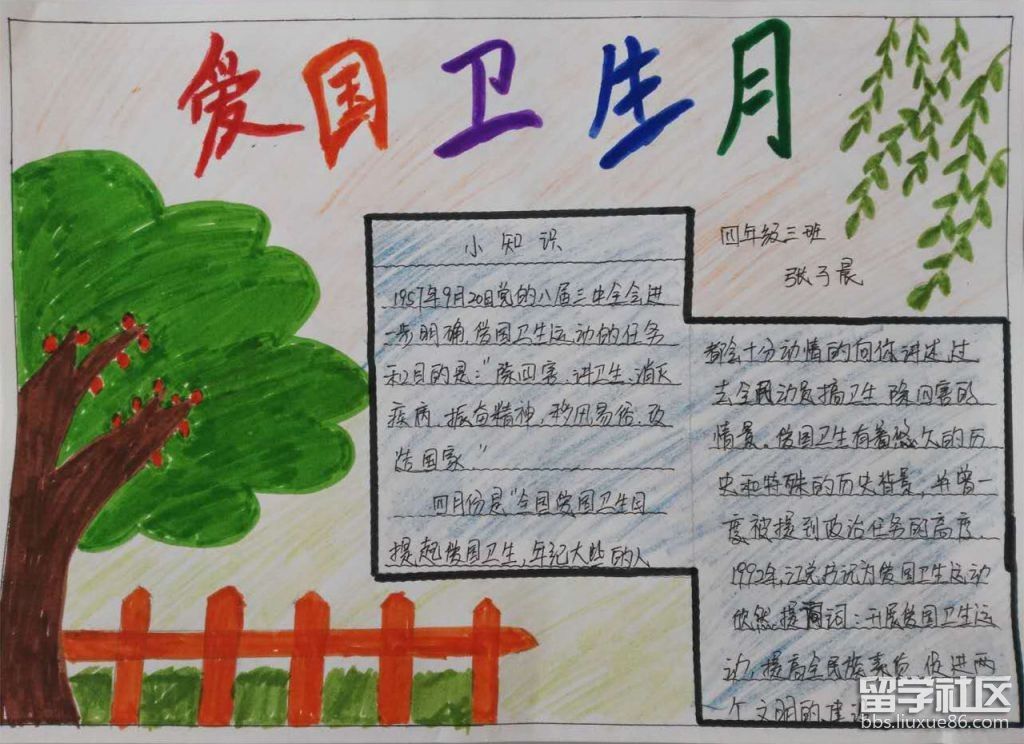 爱国卫生月
四年级三班
张子晨
小知识
1957年9月20日党的八届三中全会进
一步明确,爱国卫生运动的任务
和目的是:“除四害,讲卫生,消灭
疾病,振奋精神,移风易俗,改
造国家.”
四月份是“全国爱国卫生日
提起爱国卫生,年纪大些的人
都会十分动情的向你讲述过
去全民动员搞卫生 除四害的
情景。爱国卫生有着悠久的历
史和特殊的历史背景,并曾一
度被提到政治任务的高度.
1992年,江总书记为爱国卫生运动
欣然提词:开展爱国卫生运
动,提高全民族素质,促进两
个文明的建设
留学社区
bbs.liuxue86.com